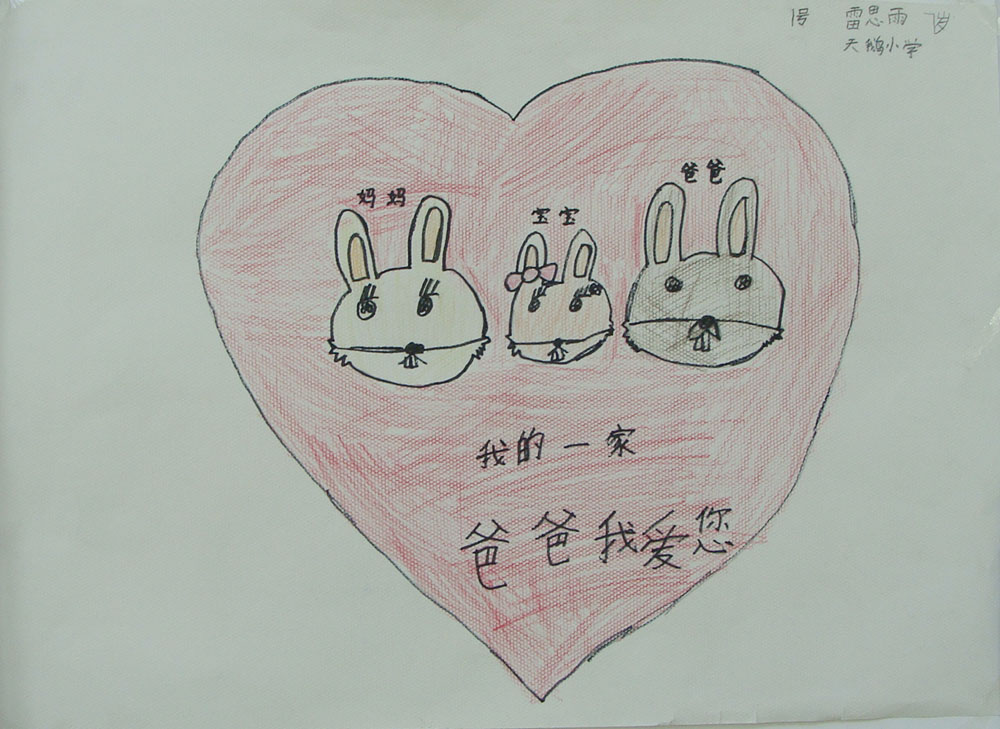 1号 雷思雨 7岁
天鹅小学
妈妈
宝宝
爸爸
我的一家
爸爸我爱您